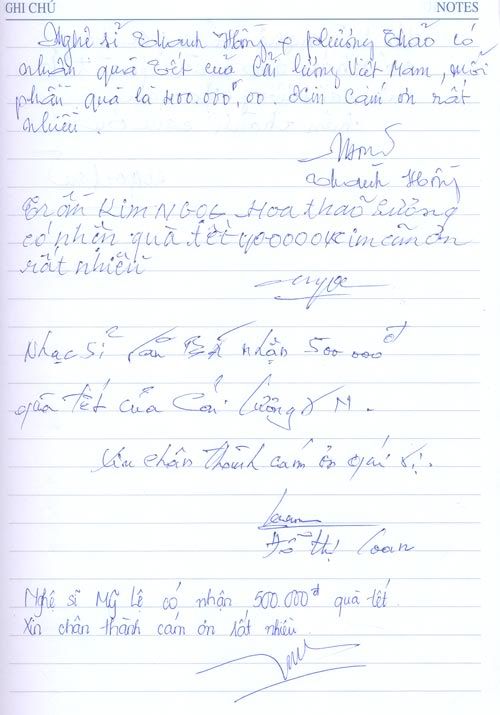 GHI CHÚ NOTES
Nghệ sĩ Thanh Hồng + Phương Thảo có
nhận quà tết của Cải lương Việt Nam, mỗi
phần quà là 400.000đ,00. Xin cám ơn rất
nhiều.
Thanh Hồng
Trần Kim Ngọc, Hoa thảo Sương
có nhận quà tết 400000 Kim cãm ơn
rất nhiều
Nhạc sĩ nhận 500 000đ
quà tết của Cải lương VN.
Xin chân thành cám ơn quí vị.
Loan
Đỗ thị Loan
Nghệ sĩ Mỹ Lệ có nhận 500.000đ quà tết
Xin chân thành cám ơn rất nhiều